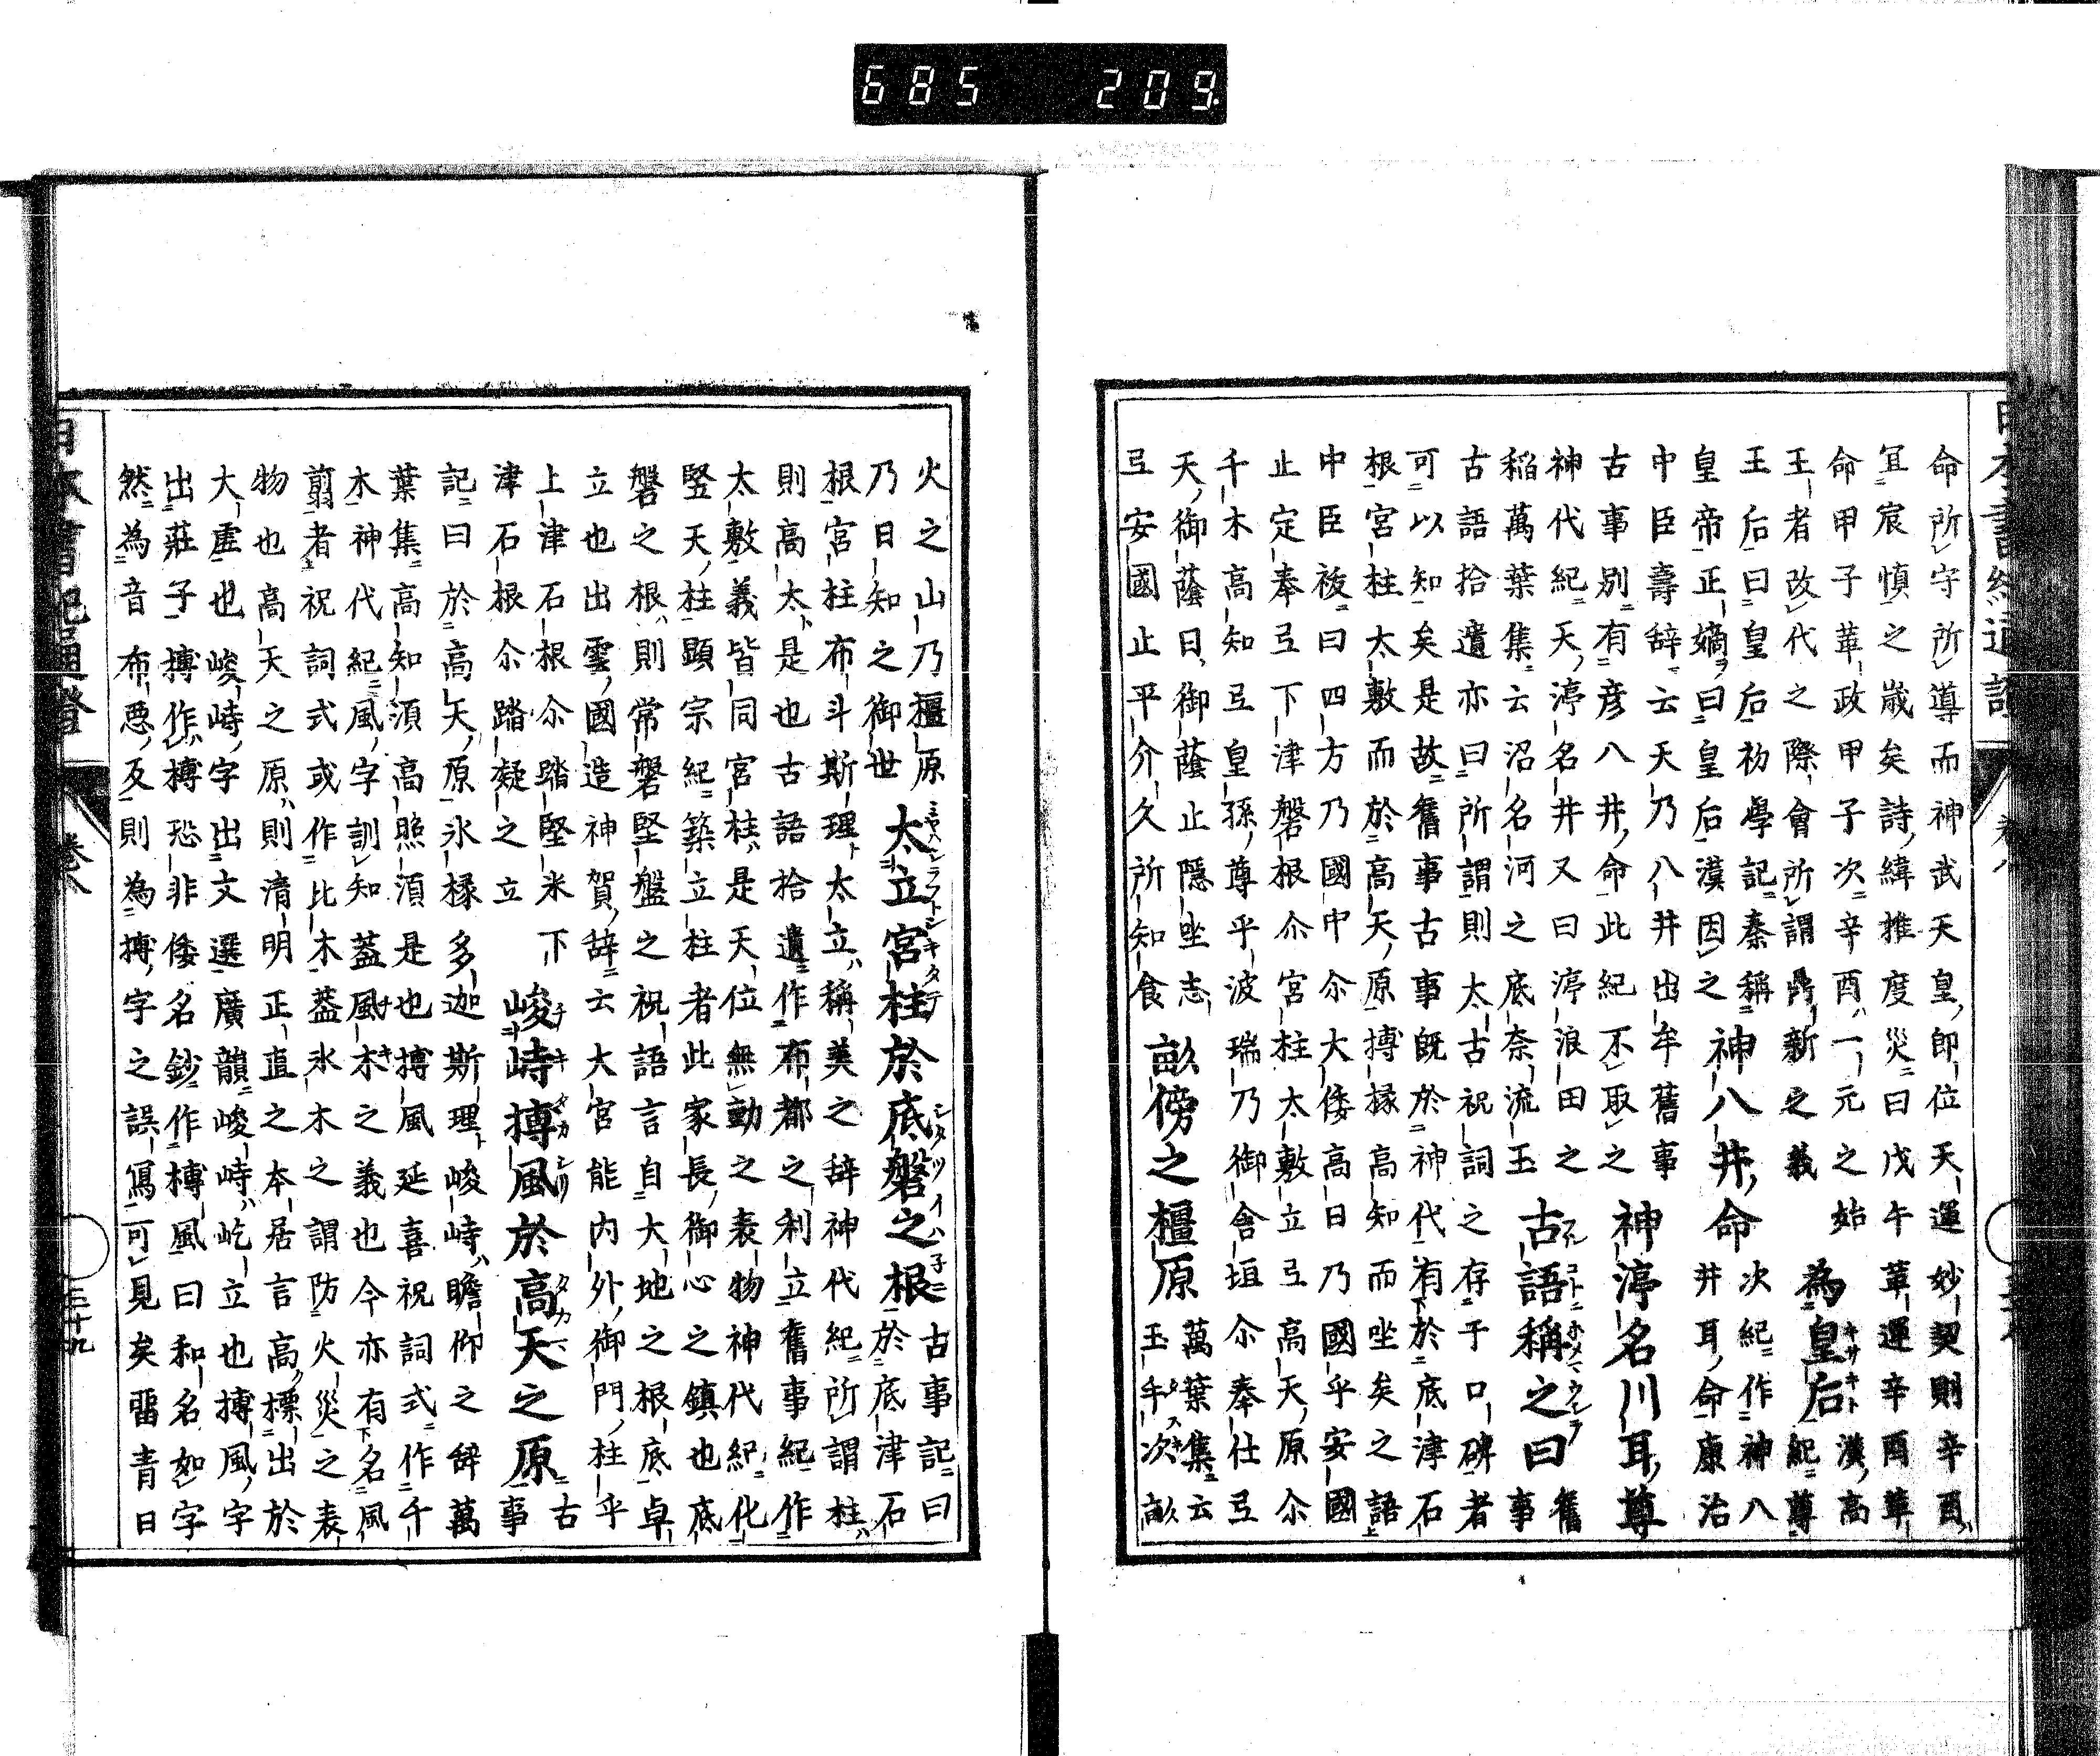 685 209
命所守所導而神武天皇即位天運妙契則辛酉
冝宸慎之歳矣詩緯推度災曰戊午革運辛酉革
命甲子革政甲子次辛酉一元之始
王者改代之際會所謂鼎新之義
為皇后
漢高
紀尊
王后曰皇后初學記秦稱
皇帝正嫡曰皇后漢因之
神八井命
次紀作神八
井耳命康治
中臣壽辞云天乃八井出牟舊事
古事別有彦八井命此紀不取之
神渟名川耳尊
神代紀天渟名井又曰渟浪田之
稲萬葉集云沼名河之底奈流玉
古語稱之曰
舊
事
古語拾遺亦曰所謂則太古祝詞之存于口碑者
可以知矣是故舊事古事既於神代有於底津石
根宮柱太敷而於高天原搏縁高知而坐矣之語
中臣祓曰四方乃國中尓大倭高日乃國乎安國
止定奉弖下津磐根尓宮柱太敷立弖高天原尓
千木高知弖皇孫尊乎波瑞乃御舍垣尓奉仕弖
天御蔭日御蔭止隱坐志
弖安國止平介久所知食
畝傍之橿原
萬葉集云
玉手次畝
火之山乃橿原
乃日知之御世
太立宮柱於底磐之根
古事記曰
於底津石
根宮柱布斗斯理太立稱美之辞神代紀所謂柱
則高太是也古語拾遺作布都之利立舊事紀作
太敷義皆同宮柱是天位無動之表物神代紀化
竪天柱顯宗紀築立柱者此家長御心之鎮也底
磐之根則常磐堅盤之祝語言自大地之根底卓
立也出雲國造神賀辞云大宮能内外御門柱乎
上津石根尓踏堅米下
津石根尓踏凝之立
峻峙搏風於高天之原
古
事
記曰於高天原氷椽多迦斯理峻峙瞻仰之辞萬
葉集高知湏高照湏是也搏風延喜祝詞式作千
木神代紀風字訓知葢風木之義也今亦有名風
翦者祝詞式或作比木葢氷木之謂防火災之表
物也高天之原則清明正直之本居言高標出於
大虛也峻峙字出文選廣韻峻峙屹立也搏風字
出莊子搏作搏恐非倭名鈔作榑風曰和名如字
然為音布惡反則為搏字之誤寫可見矣畱青日